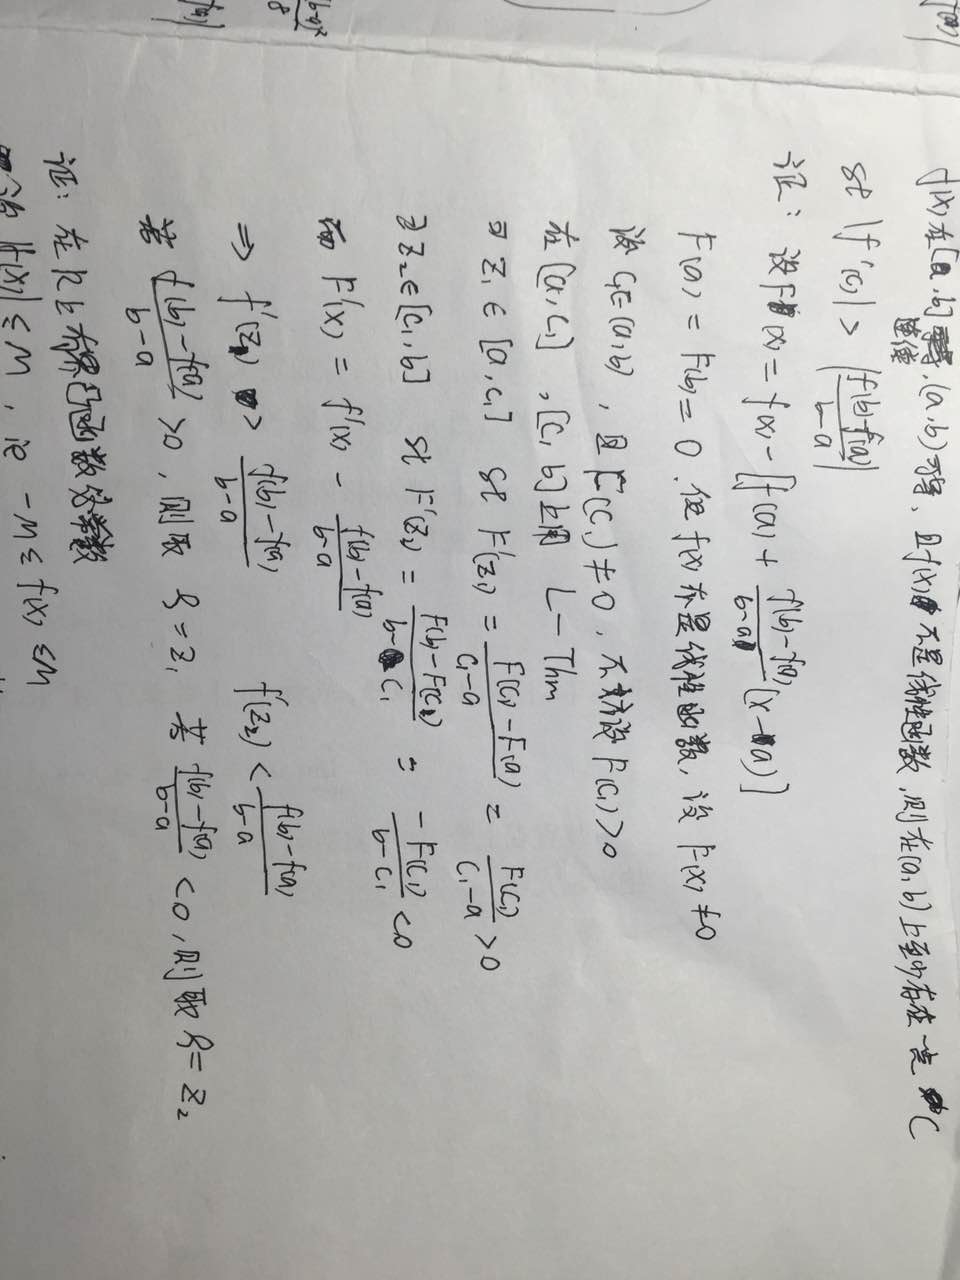 f(x)在[a,b]连续,(a,b)可导,且f(x)不是线性函数,则在(a,b)上至少存在一点C
st |f'(c)| > |f(b)-f(a)/b-a|
证:设F(x) = f(x) - [f(a) + f(b)-f(a)/b-a (x-a)]
F(a) = F(b) = 0. 但f(x)不是线性函数,设F(x)≠0
设C₁∈(a,b),且F(C₁)≠0,不妨设F(C₁)>0
在[a,C₁],[C₁,b]上用 L-Thm
∃ Z₁∈[a,C₁] st F'(Z₁) = F(C₁)-F(a)/C₁-a = F(C₁)/C₁-a >0
∃ Z₂∈[C₁,b] st F'(Z₂) = F(b)-F(C₁)/b-C₁ = -F(C₁)/b-C₁ <0
而 F'(x) = f'(x) - f(b)-f(a)/b-a
⇒ f'(Z₁) > f(b)-f(a)/b-a f'(Z₂) < f(b)-f(a)/b-a
若 f(b)-f(a)/b-a >0,则取 ξ=Z₁ 若 f(b)-f(a)/b-a <0,则取ξ=Z₂
证:在R上有界凸函数必常数
|f(x)| ≤ M, ie -M ≤ f(x) ≤ M